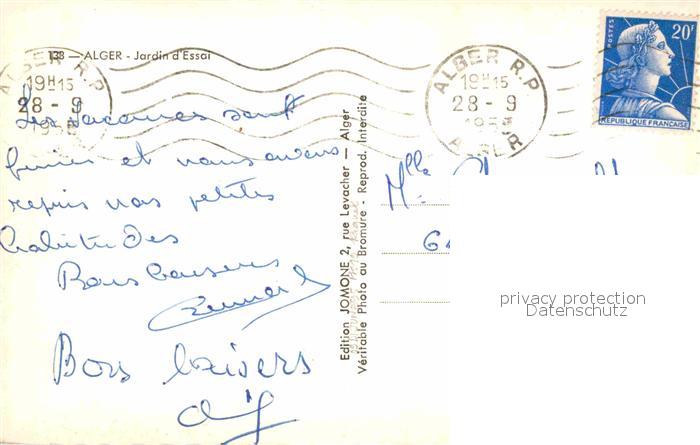 138 — ALGER - Jardin d'Essai
ALGER R.P
19H15
28 - 9
ALGER
ALGER R.P
19H15
28 - 9
ALGER
POSTES
20F
REPUBLIQUE FRANÇAISE
Les vacances sont
finies et nous avons
repris nos petites
habitudes
Bons baisers
Bons baisers
Edition JOMONE 2, rue Levacher — Alger
Véritable Photo au Bromure - Reprod. Interdite
Mlle
privacy protection
Datenschutz